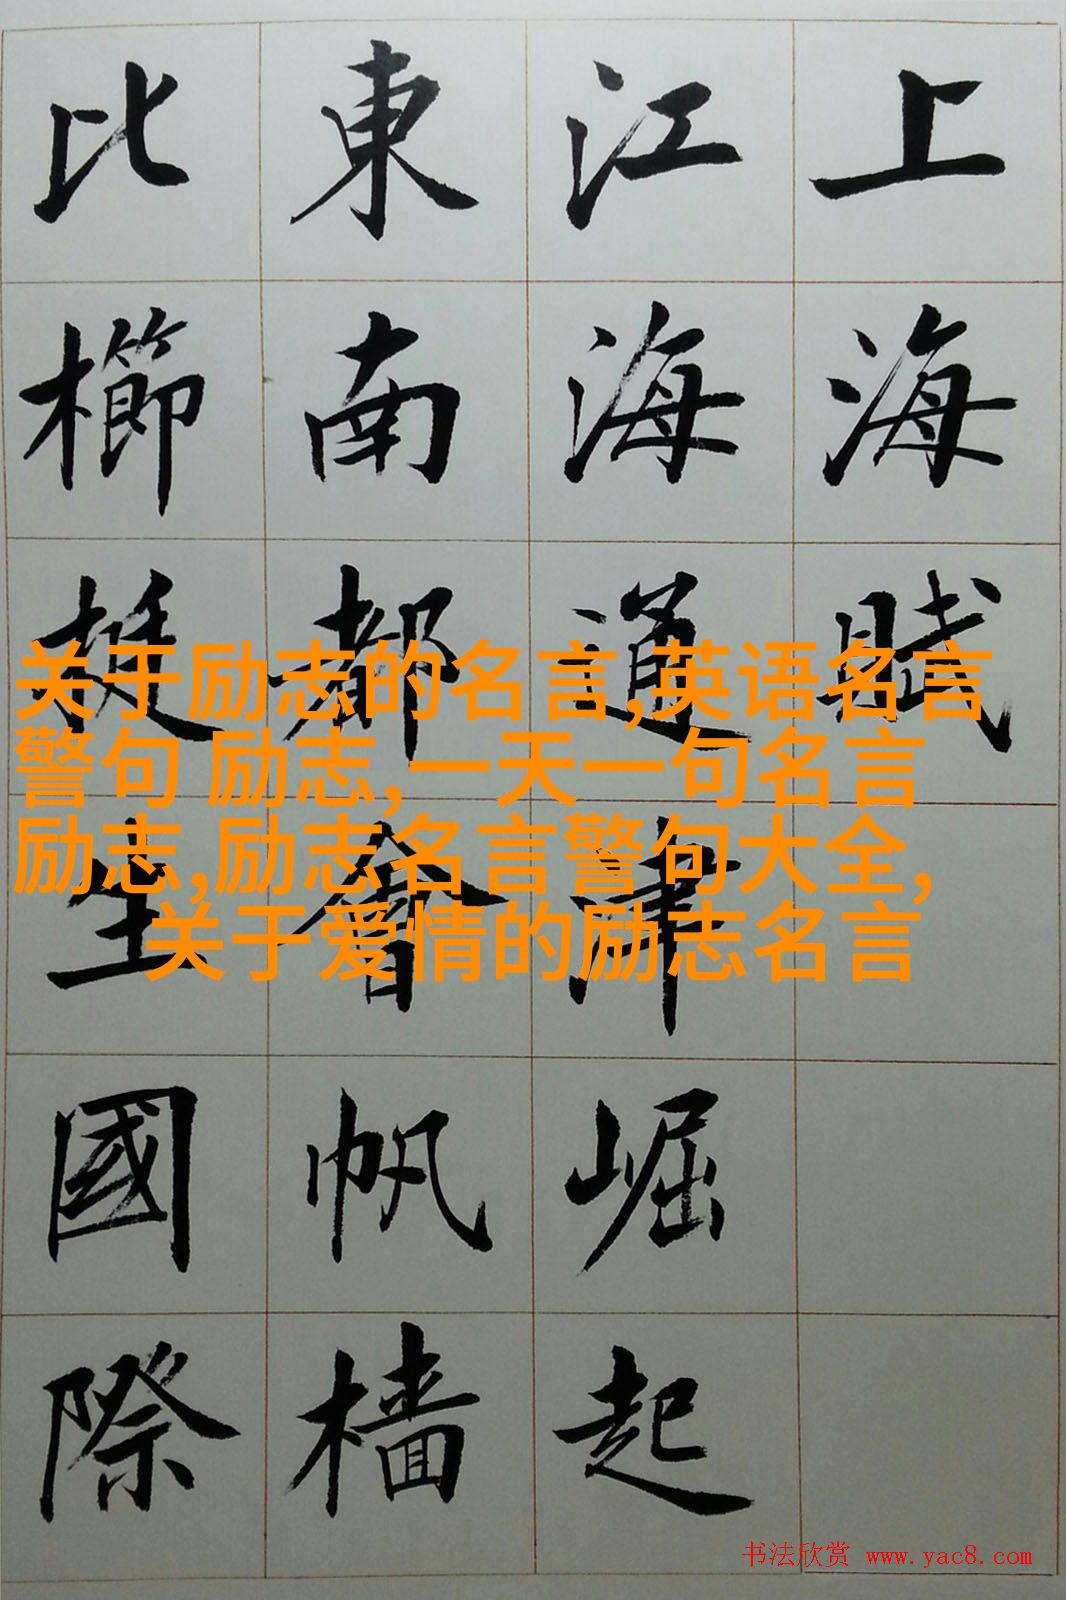 上海賦
江海通津崛起
東南都會帆檣
比櫛挺生國際
关于励志的名言,英语名言
警句 励志, 一天一句名言
励志,励志名言警句大全,
关于爱情的励志名言
书法欣赏 www.yac8.com